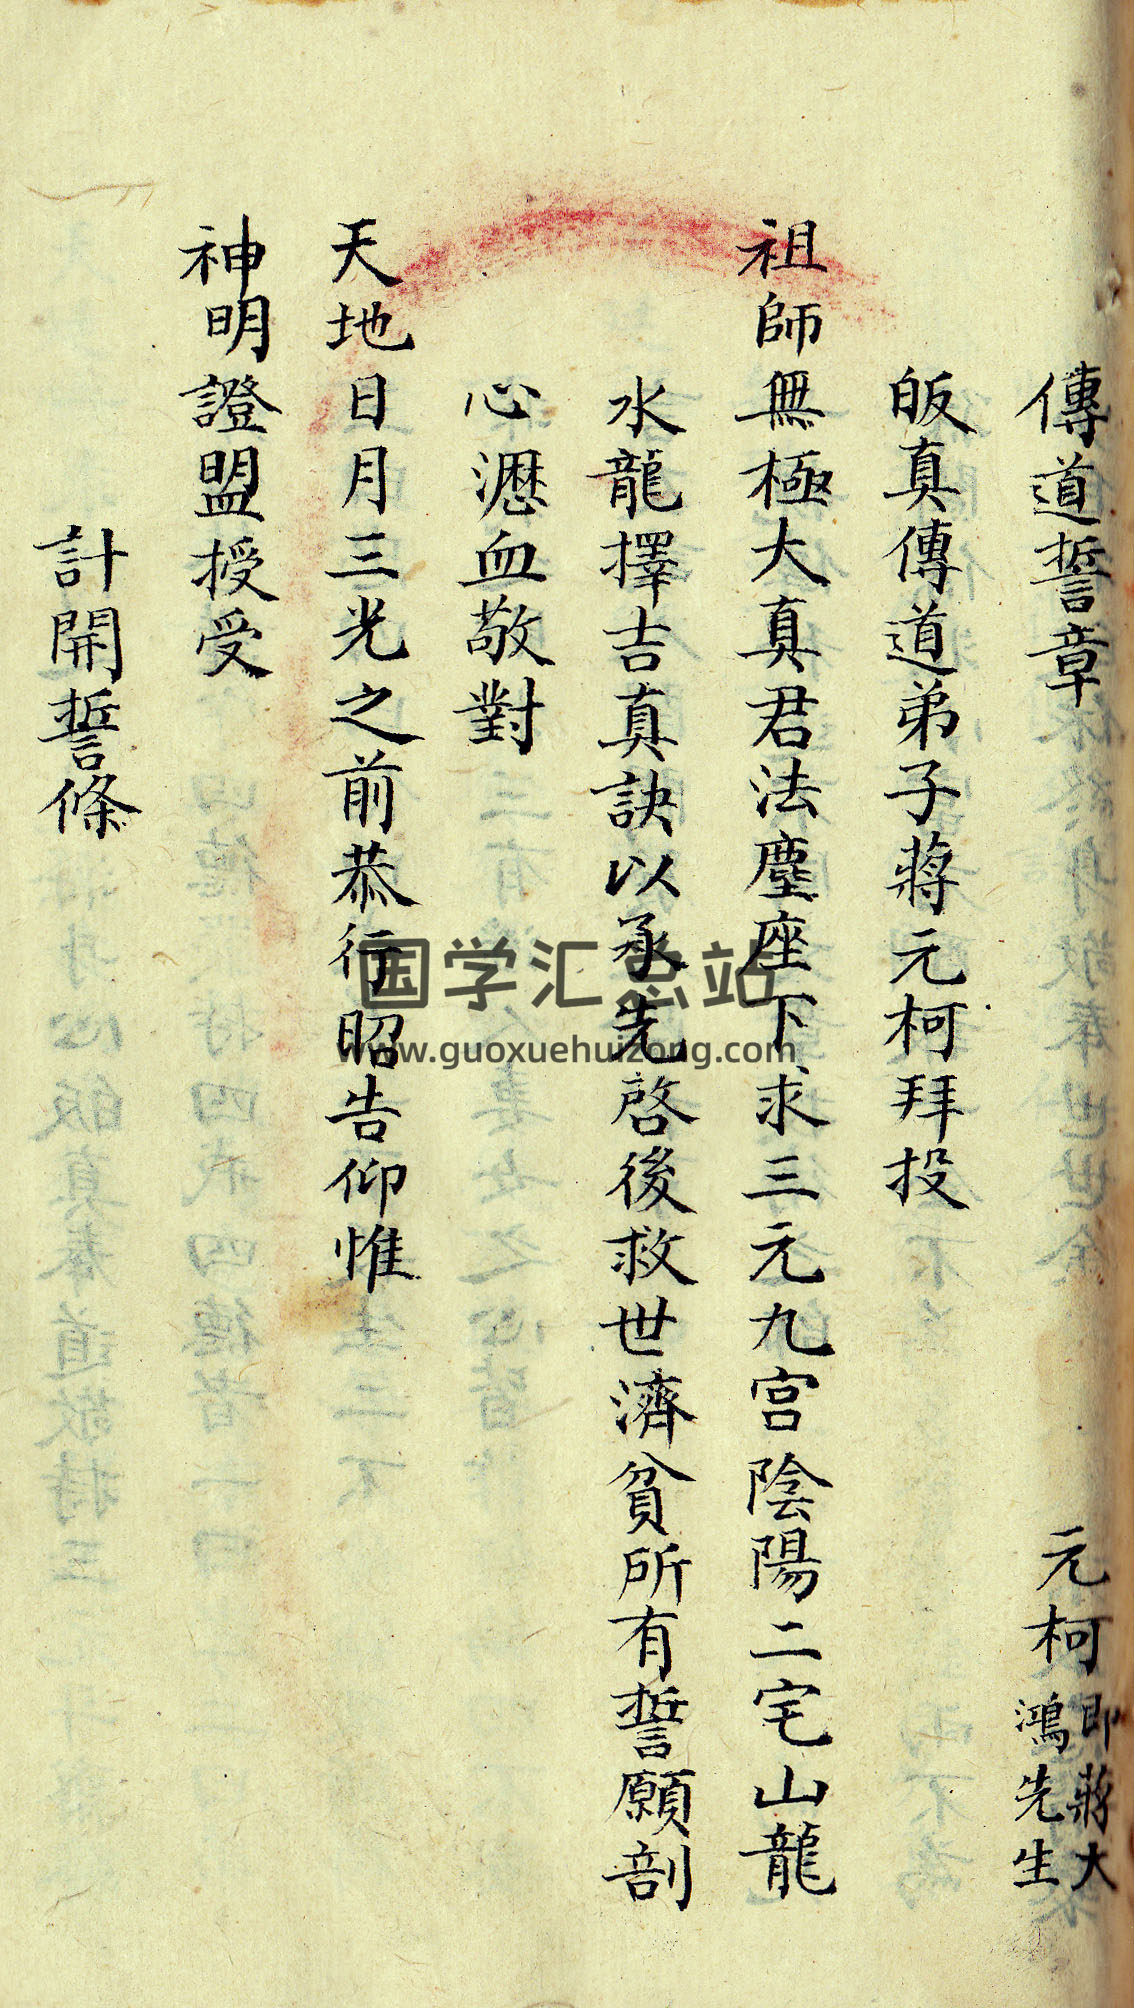 傳道誓章 元柯即蔣大鴻先生
皈真傳道弟子蔣元柯拜投
祖師無極大真君法塵座下求三元九宮陰陽二宅山龍
水龍擇吉真訣以承先啓後救世濟貧所有誓願剖
心瀝血敬對
天地日月三光之前恭行昭告仰惟
神明證盟授受
計開誓條
国学汇总站
www.guoxuehuizong.com